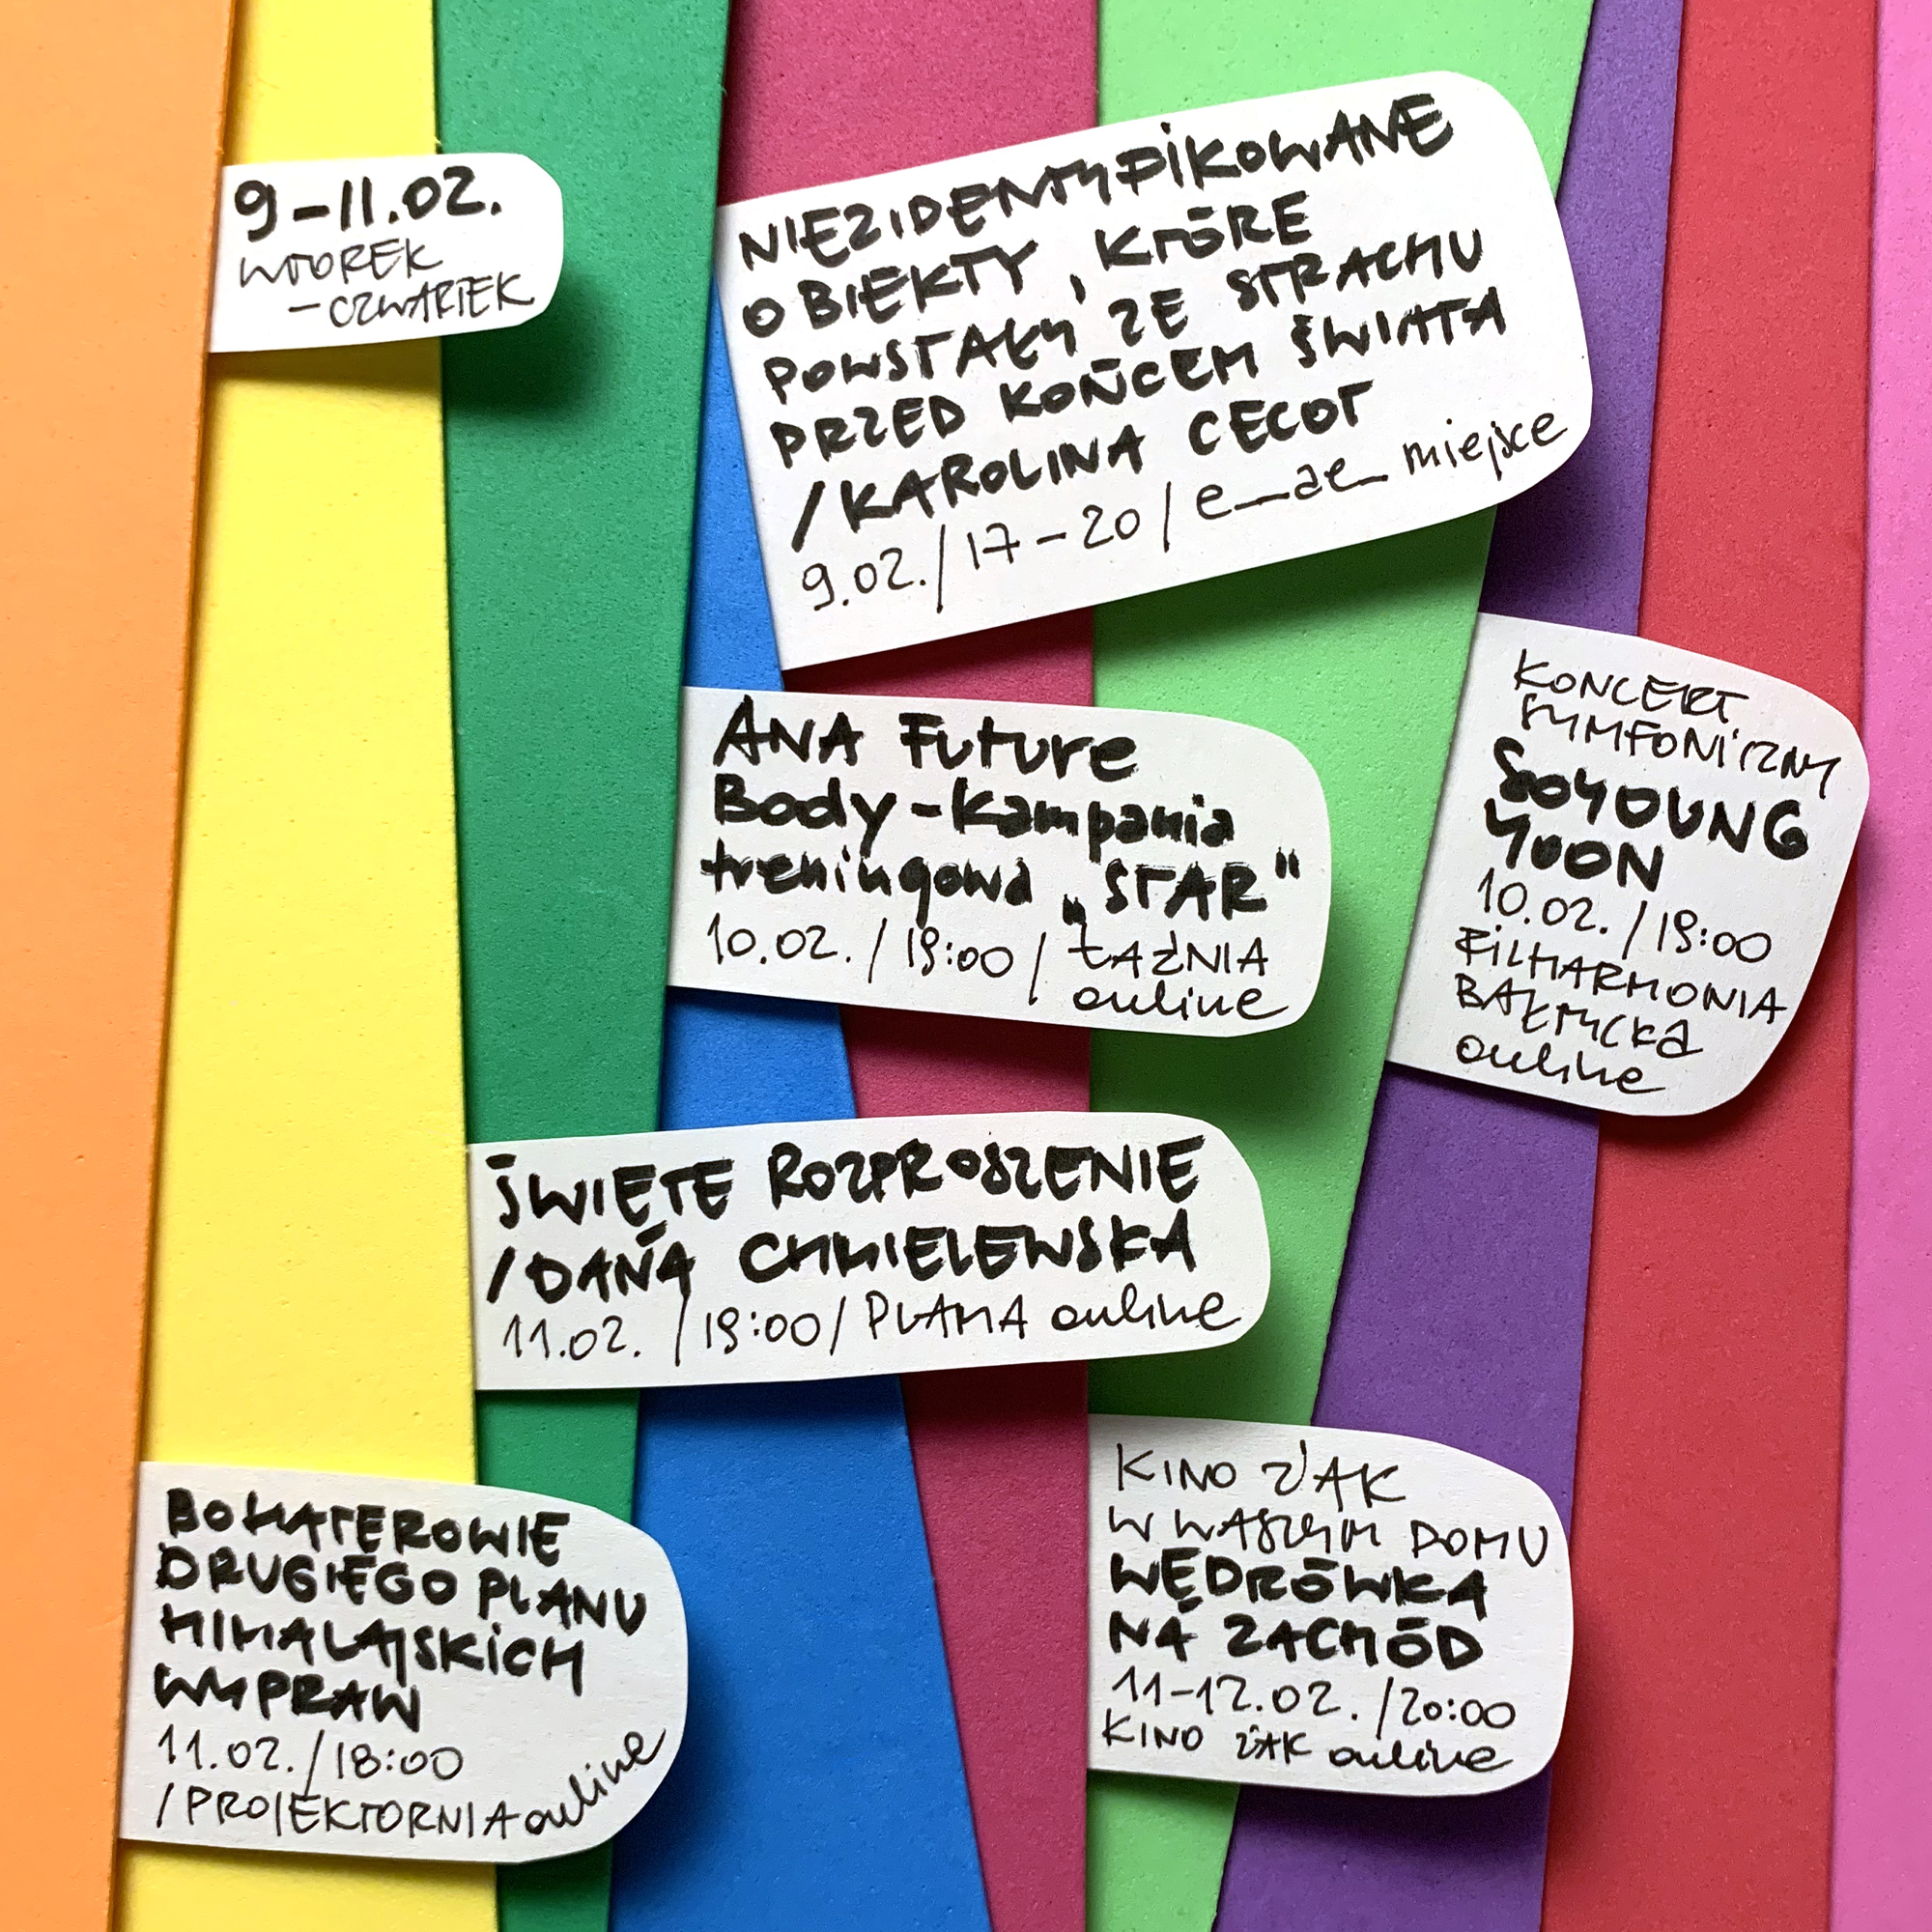 9-11.02.
WTOREK
-CZWARTEK
NIEZIDENTYFIKOWANE
OBIEKTY, KTÓRE
POWSTAŁY ZE STRACHU
PRZED KOŃCEM ŚWIATA
/KAROLINA CECOT
9.02./17-20/e_ae_ miejsce
ANA Future
Body-kampania
treningowa „STAR"
10.02./19:00/ŁAŹNIA
online
KONCERT
SYMFONICZNY
SOYOUNG
YOON
10.02./19:00
FILHARMONIA
BAŁTYCKA
online
ŚWIĘTE ROZPROSZENIE
/DANA CHMIELEWSKA
11.02./19:00/PLAMA online
BOHATEROWIE
DRUGIEGO PLANU
HIMALAJSKICH
WYPRAW
11.02./18:00
/PROJEKTORNIA online
KINO ŻAK
W WASZYM DOMU
WĘDRÓWKA
NA ZACHÓD
11-12.02./20:00
KINO ŻAK online